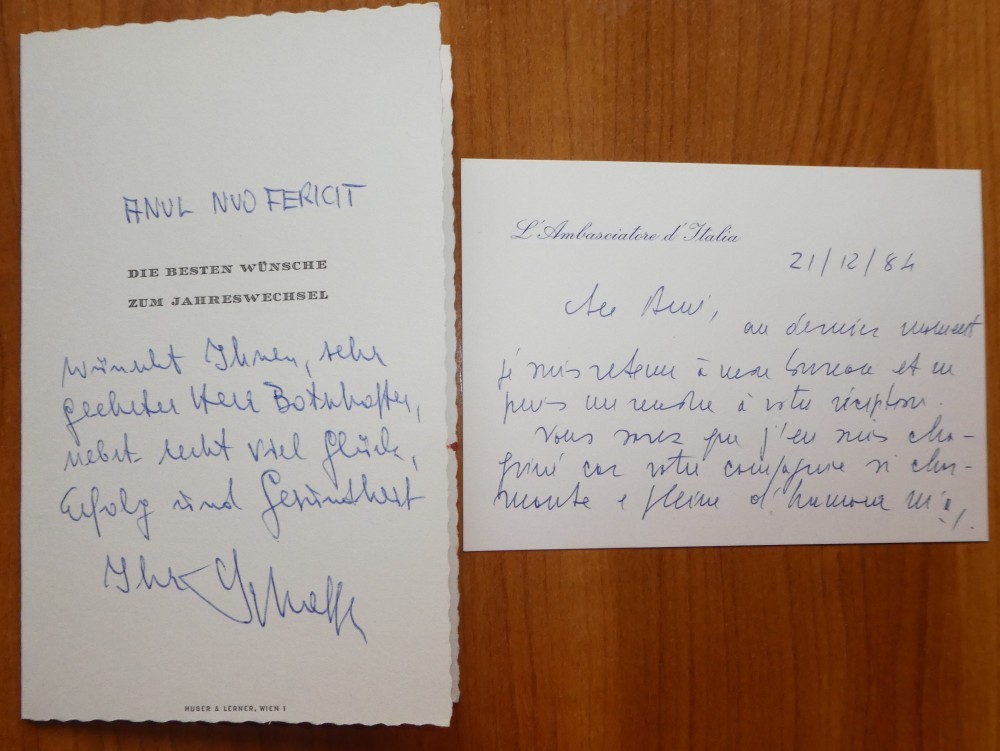 ANUL NUO FERICIT
DIE BESTEN WÜNSCHE
ZUM JAHRESWECHSEL
wünscht Ihnen, sehr
geehrter Herr Botschafter,
nebst recht viel Glück,
Erfolg und Gesundheit
Ihr
HUBER & LERNER, WIEN 1
L'Ambasciatore d'Italia
21/12/84
au dernier moment
je suis retenu à mon bureau et ne
puis me rendre à votre réception.
Vous savez que j'en suis cha-
griné car votre compagnie si char-
mante e pleine d'humour